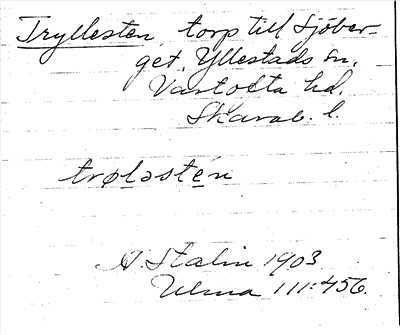 Tryllesten, torp till Sjöber-
get, Yllestads sn,
Vartofta hd.
Skarab. l.
trøləsten
A. Stalin 1903
Ulma 111:456.